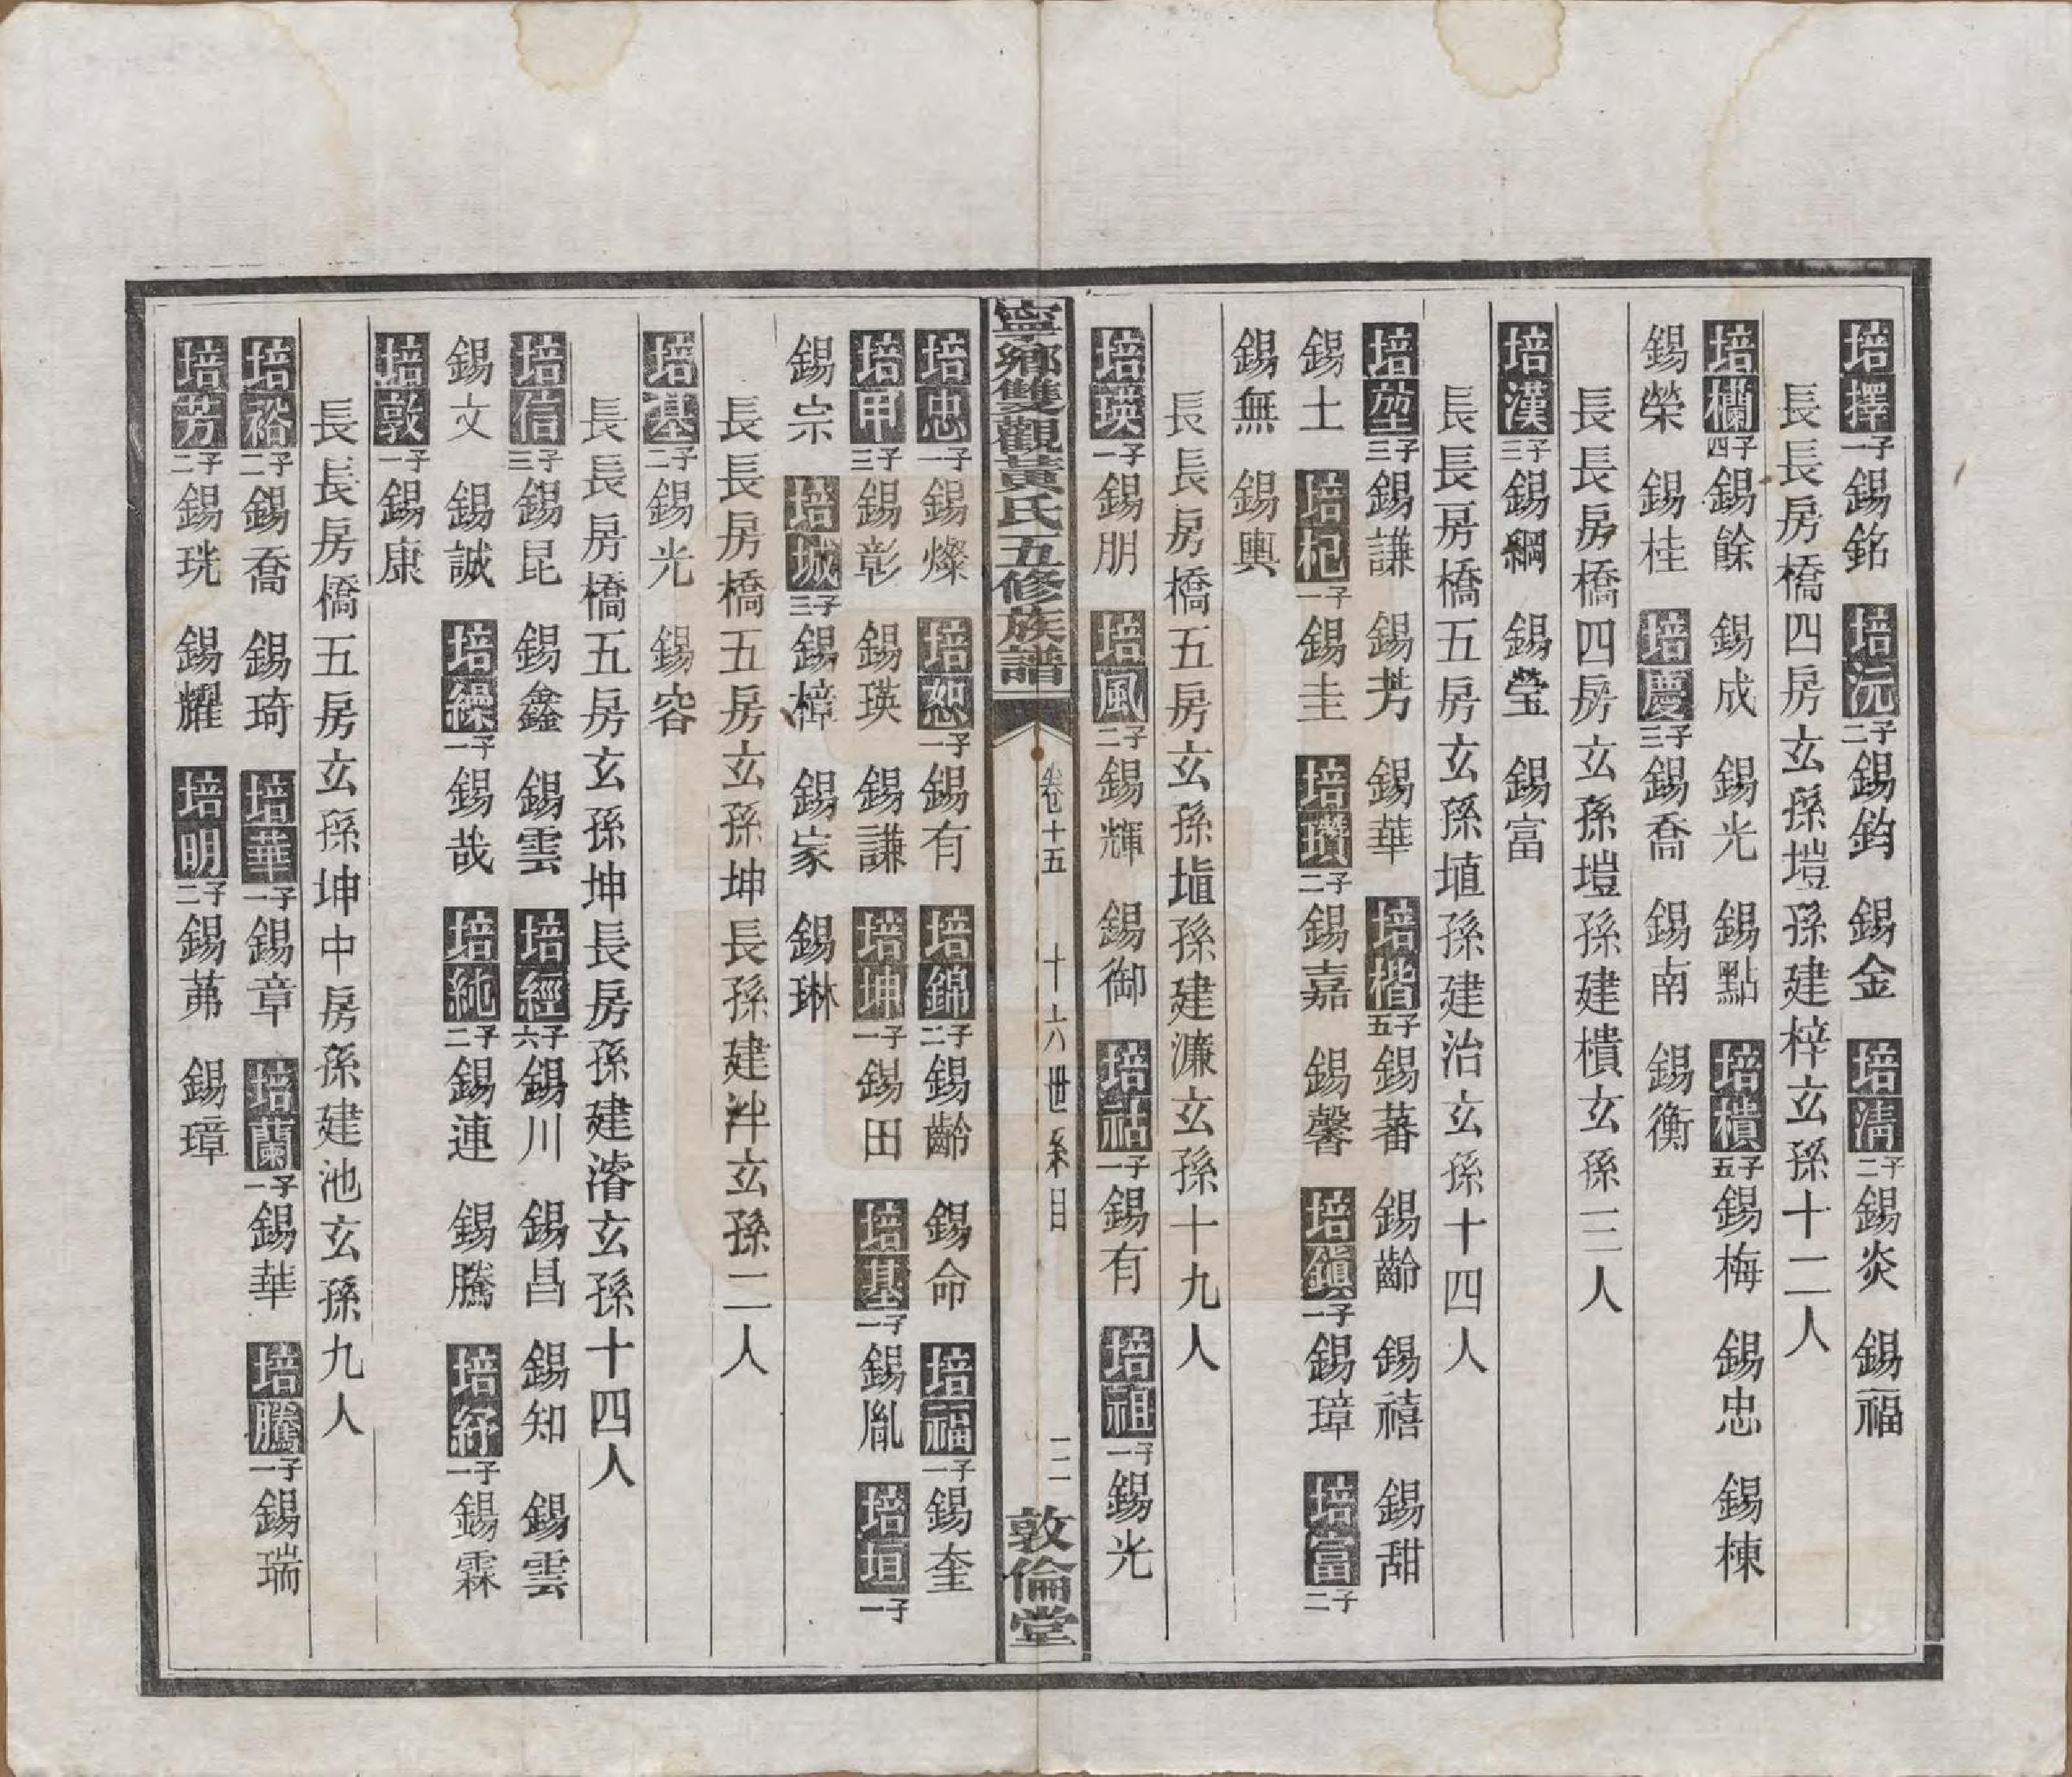 培擇一子錫銘　培沅二子錫鈞　錫金　培清二子錫炎　錫福
長長房橋四房玄孫塏孫建梓玄孫十二人
培欄四子錫餘　錫成　錫光　錫點　培樻五子錫梅　錫忠　錫棟
錫榮　錫桂　培慶三子錫喬　錫南　錫衡
長長房橋四房玄孫塏孫建樻玄孫三人
培漢三子錫綱　錫瑩　錫富
長長房橋五房玄孫埴孫建治玄孫十四人
培堃三子錫謙　錫芳　錫華　培楷五子錫蕃　錫齡　錫禧　錫甜
錫土　培杞一子錫圭　培瓚二子錫嘉　錫馨　培鎮一子錫璋　培富二子
錫無　錫輿
長長房橋五房玄孫塤孫建濂玄孫十九人
培瑛一子錫朋　培風二子錫輝　錫御　培祜一子錫有　培祖一子錫光
寧鄉雙觀黃氏五修族譜　卷十五　十六世系目　三　敦倫堂
培忠一子錫燦　培恕一子錫有　培錦二子錫齡　錫命　培福一子錫奎
培甲三子錫彰　錫瑛　錫謙　培坤一子錫田　培基一子錫胤　培垣一子
錫宗　培城三子錫樟　錫家　錫琳
長長房橋五房玄孫坤長孫建泮玄孫二人
培基二子錫光　錫容
長長房橋五房玄孫坤長房孫建濬玄孫十四人
培信三子錫昆　錫鑫　錫雲　培經六子錫川　錫昌　錫知　錫雲
錫文　錫誠　培繰一子錫哉　培純二子錫連　錫騰　培紓一子錫霖
培敦一子錫康
長長房橋五房玄孫坤中房孫建池玄孫九人
培裕二子錫喬　錫琦　培華一子錫章　培蘭一子錫華　培騰一子錫瑞
培芳二子錫珖　錫耀　培明二子錫茀　錫璋